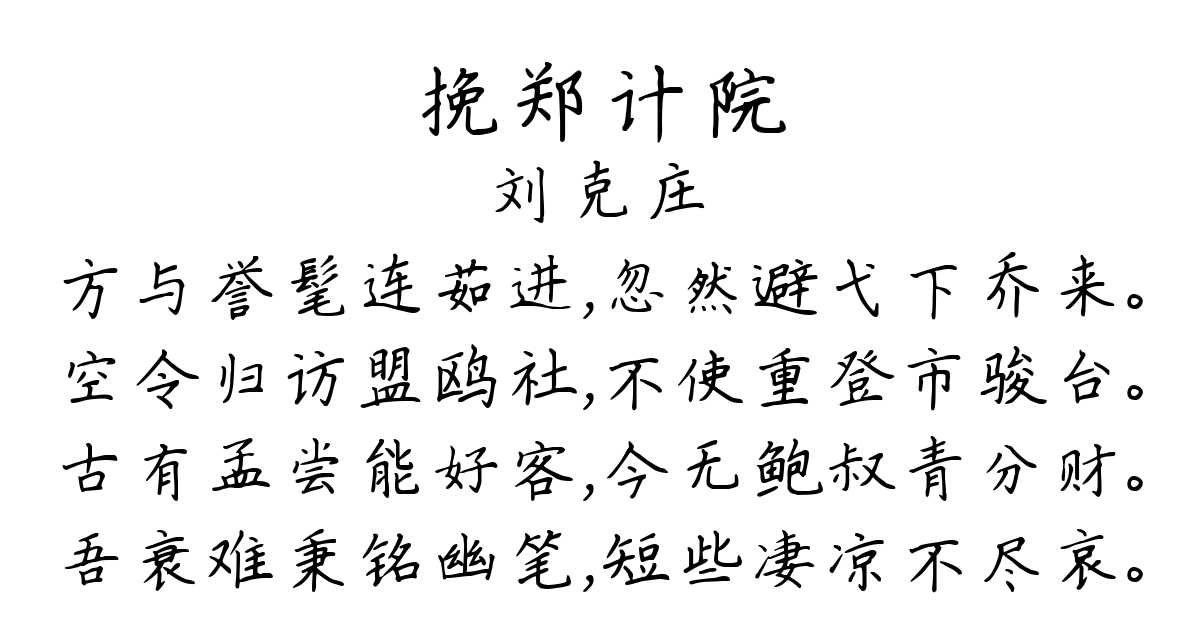 挽郑计院
刘克庄
方与誉髦连茹进,忽然避弋下乔来。
空令归访盟鸥社,不使重登市骏台。
古有孟尝能好客,今无鲍叔青分财。
吾衰难秉铭幽笔,短些凄凉不尽哀。